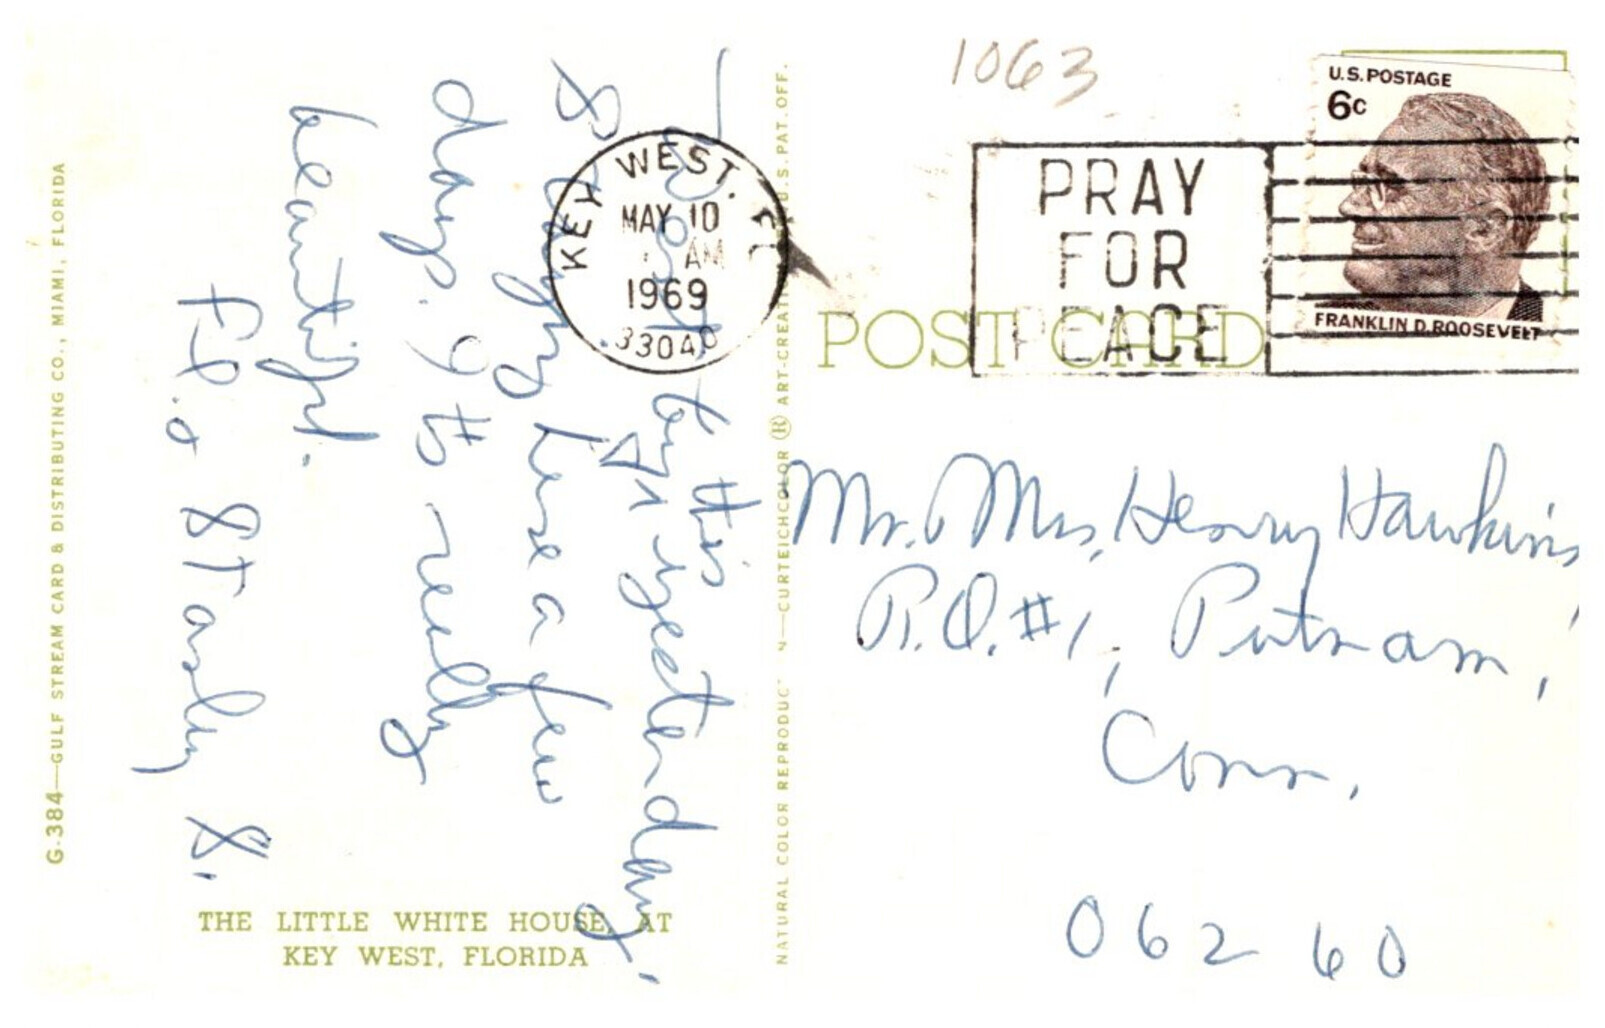 1063
U.S. POSTAGE
6c
FRANKLIN D. ROOSEVELT
KEY WEST, FL
MAY 10
AM
1969
33040
PRAY
FOR
PEACE
POST CARD
Went by this
yesterday,
8 Days here a few
days. It is really
beautiful.
Flo & Stanley S.
Mr. Mrs. Henry Hawkins
R.D. #1, Putnam,
Conn.
06260
THE LITTLE WHITE HOUSE, AT
KEY WEST, FLORIDA
G-384—GULF STREAM CARD & DISTRIBUTING CO., MIAMI, FLORIDA
NATURAL COLOR REPRODUC N—CURTEICHCOLOR ® ART-CREATI U.S. PAT. OFF.